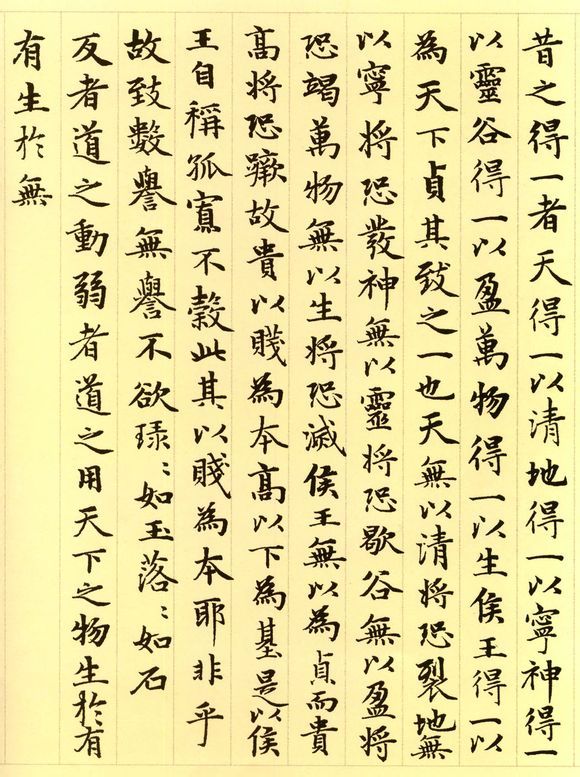 昔之得一者天得一以清地得一以寧神得一
以靈谷得一以盈萬物得一以生侯王得一以
為天下貞其致之一也天無以清將恐裂地無
以寧將恐發神無以靈將恐歇谷無以盈將
恐竭萬物無以生將恐滅侯王無以為貞而貴
高將恐蹶故貴以賤為本高以下為基是以侯
王自稱孤寡不穀此其以賤為本耶非乎
故致數譽無譽不欲琭：如玉落：如石
反者道之動弱者道之用天下之物生於有
有生於無